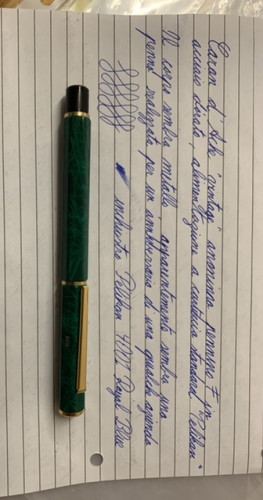 Caran d'Ache "vintage" anonima, pennino F in
acciaio dorato, alimentazione a cartuccia standard "Pelikan"
Il corpo sembra metallo, apparentemente sembra una
penna realizzata per un anniversario di una qualche azienda
inchiostro Pelikan 4001 Royal Blue